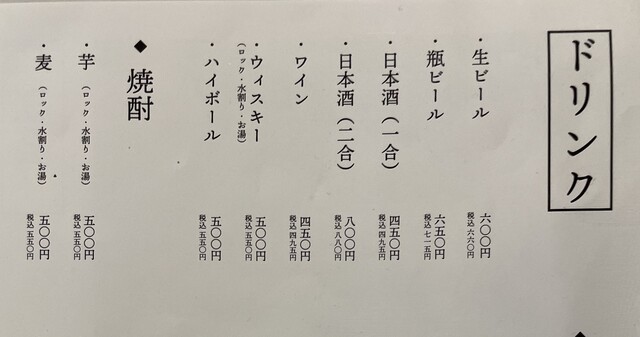 ドリンク
・生ビール
六〇〇円
税込 六六〇円
・瓶ビール
六五〇円
税込 七一五円
・日本酒（一合）
四五〇円
税込 四九五円
・日本酒（二合）
八〇〇円
税込 八八〇円
・ワイン
四五〇円
税込 四九五円
・ウィスキー
（ロック・水割り・お湯）
五〇〇円
税込 五五〇円
・ハイボール
五〇〇円
税込 五五〇円
◆ 焼酎
・芋（ロック・水割り・お湯）
五〇〇円
税込 五五〇円
・麦（ロック・水割り・お湯）
五〇〇円
税込 五五〇円